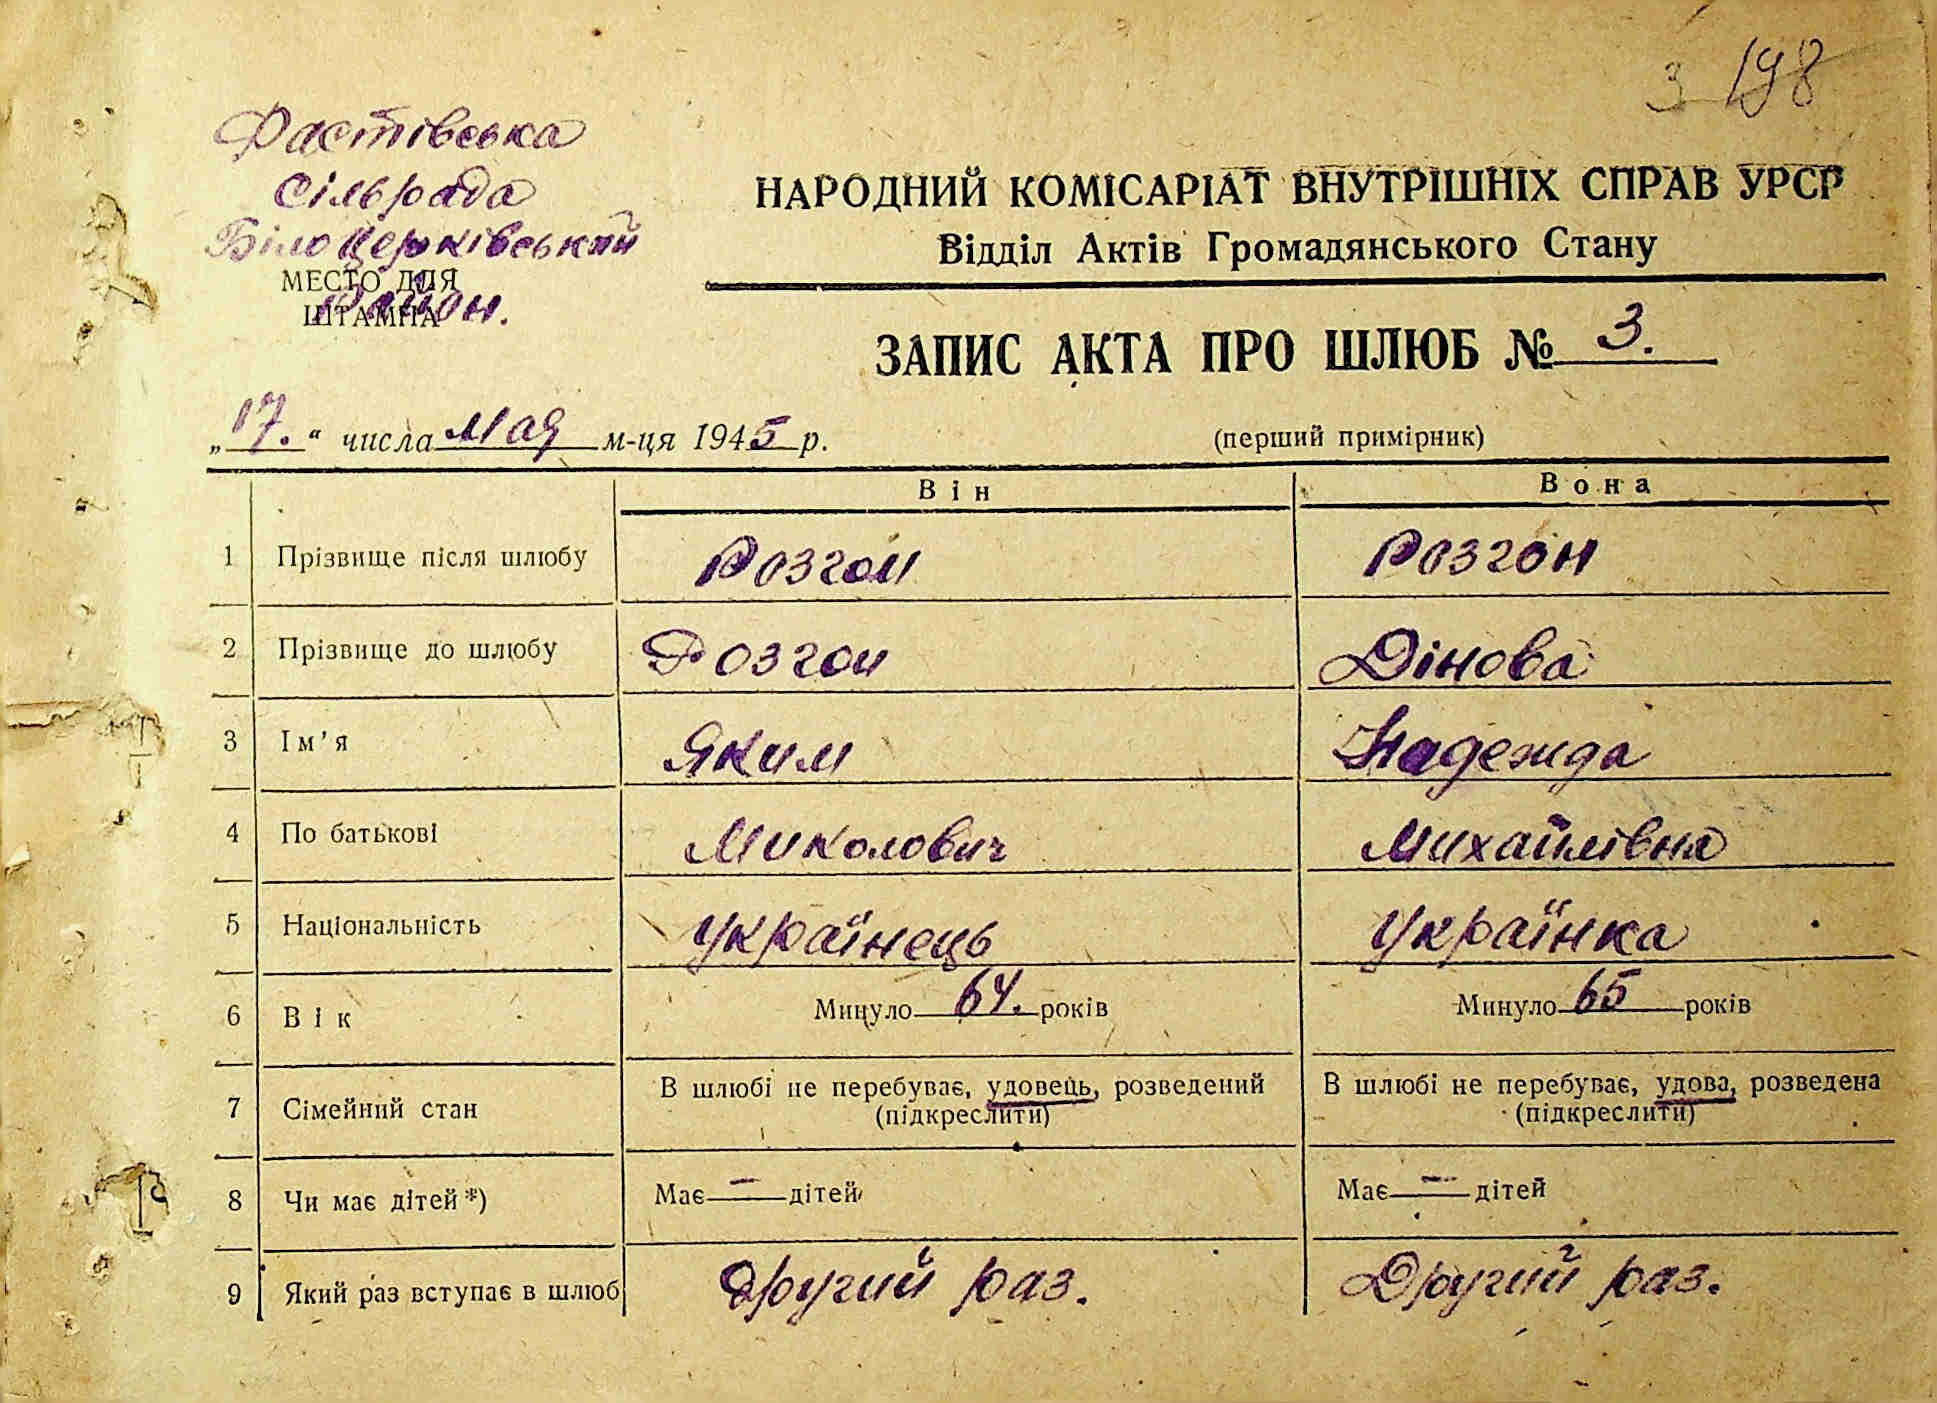 3 198
Фастівська
сільрада
Білоцерківський
район.
МЕСТО ДЛЯ
ШТАМПА
НАРОДНИЙ КОМІСАРІАТ ВНУТРІШНІХ СПРАВ УРСР
Відділ Актів Громадянського Стану
ЗАПИС АКТА ПРО ШЛЮБ № 3.
„17.“ числа мая м-ця 1945 р.
(перший примірник)
Він Вона
1 Прізвище після шлюбу Розгон Розгон
2 Прізвище до шлюбу Розгон Дінова
3 Ім’я Яким Надежда
4 По батькові Миколович Михайлівна
5 Національність Українець Українка
6 Вік Минуло 64. років Минуло 65 років
7 Сімейний стан В шлюбі не перебуває, удовець, розведений В шлюбі не перебуває, удова, розведена
(підкреслити) (підкреслити)
8 Чи має дітей *) Має — дітей Має — дітей
9 Який раз вступає в шлюб Другий раз. Другий раз.